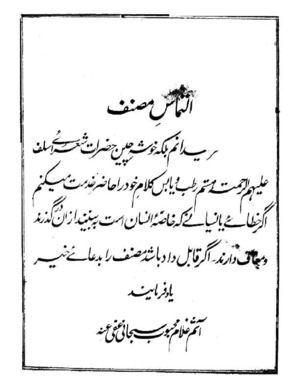 التماسِ مصنف
ہیچمدانم بلکہ خوشہ چین حضرات شعرائے سلف
علیہم الرحمت و مستم رطب و یابس کلام خود را حاضر خدمت میکنم
اگر خطائے یا نسیانے کہ خاصۂ انسان است بہ بینند ازان درگذرند
و معاف دارند۔ اگر قابل داد باشد مصنف را بدعائے خیر
یاد فرمایند
آثم غلام محبوب سبحانی عفی عنہ